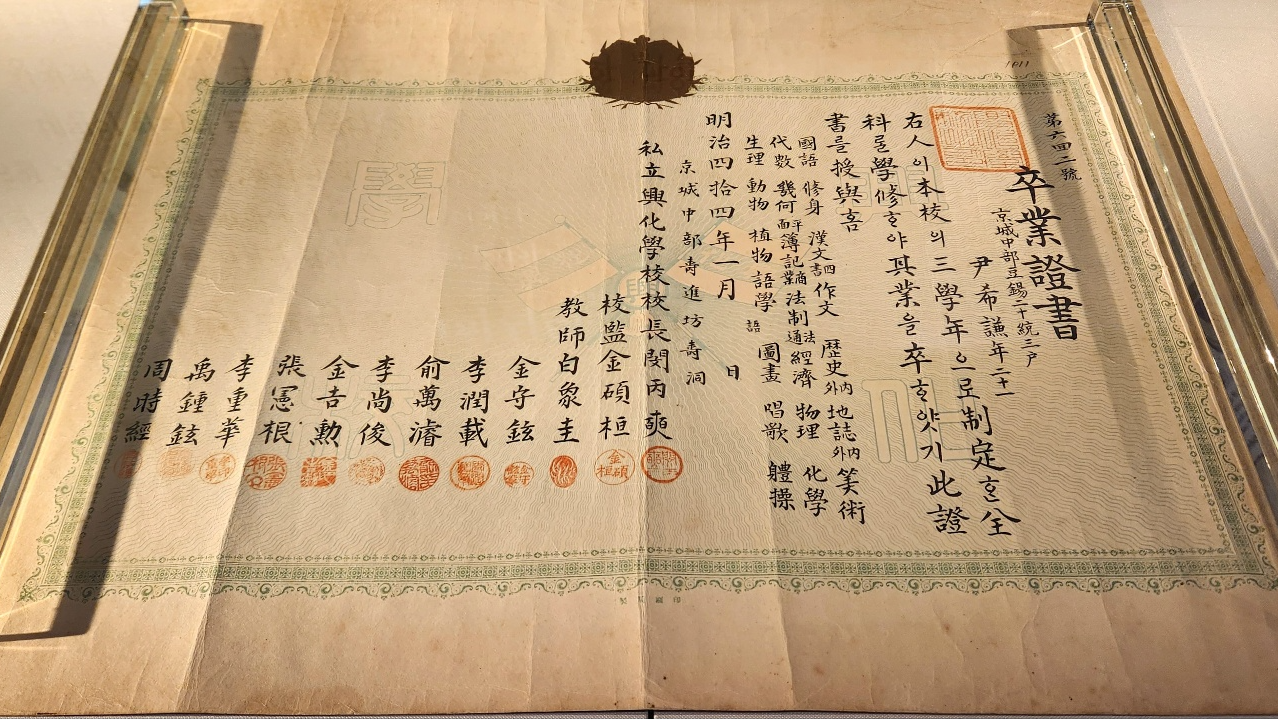 第六四二號
卒業證書
京城中部豆錫二十統三戶
尹希謙年二十一
右人이本校의三學年으로制定ᄒᆞᆫ全
科를學修ᄒᆞ야其業을卒ᄒᆞ얏기此證
書를授與ᄒᆞᆷ
國語 修身 漢文四書 作文 歷史內外 地誌內外 筭術
代數 幾何平面 簿記商業 法制法通 經濟 物理 化學
生理 動物 植物 語學語 圖畫 唱歌 體操
明治四拾四年一月 日
京城中部壽進坊壽洞
私立興化學校校長閔丙奭
校監金碩桓
教師白象圭
金守鉉
李潤載
兪萬濬
李尚俊
金吉勳
張憲根
李重華
禹鍾鉉
周時經
學